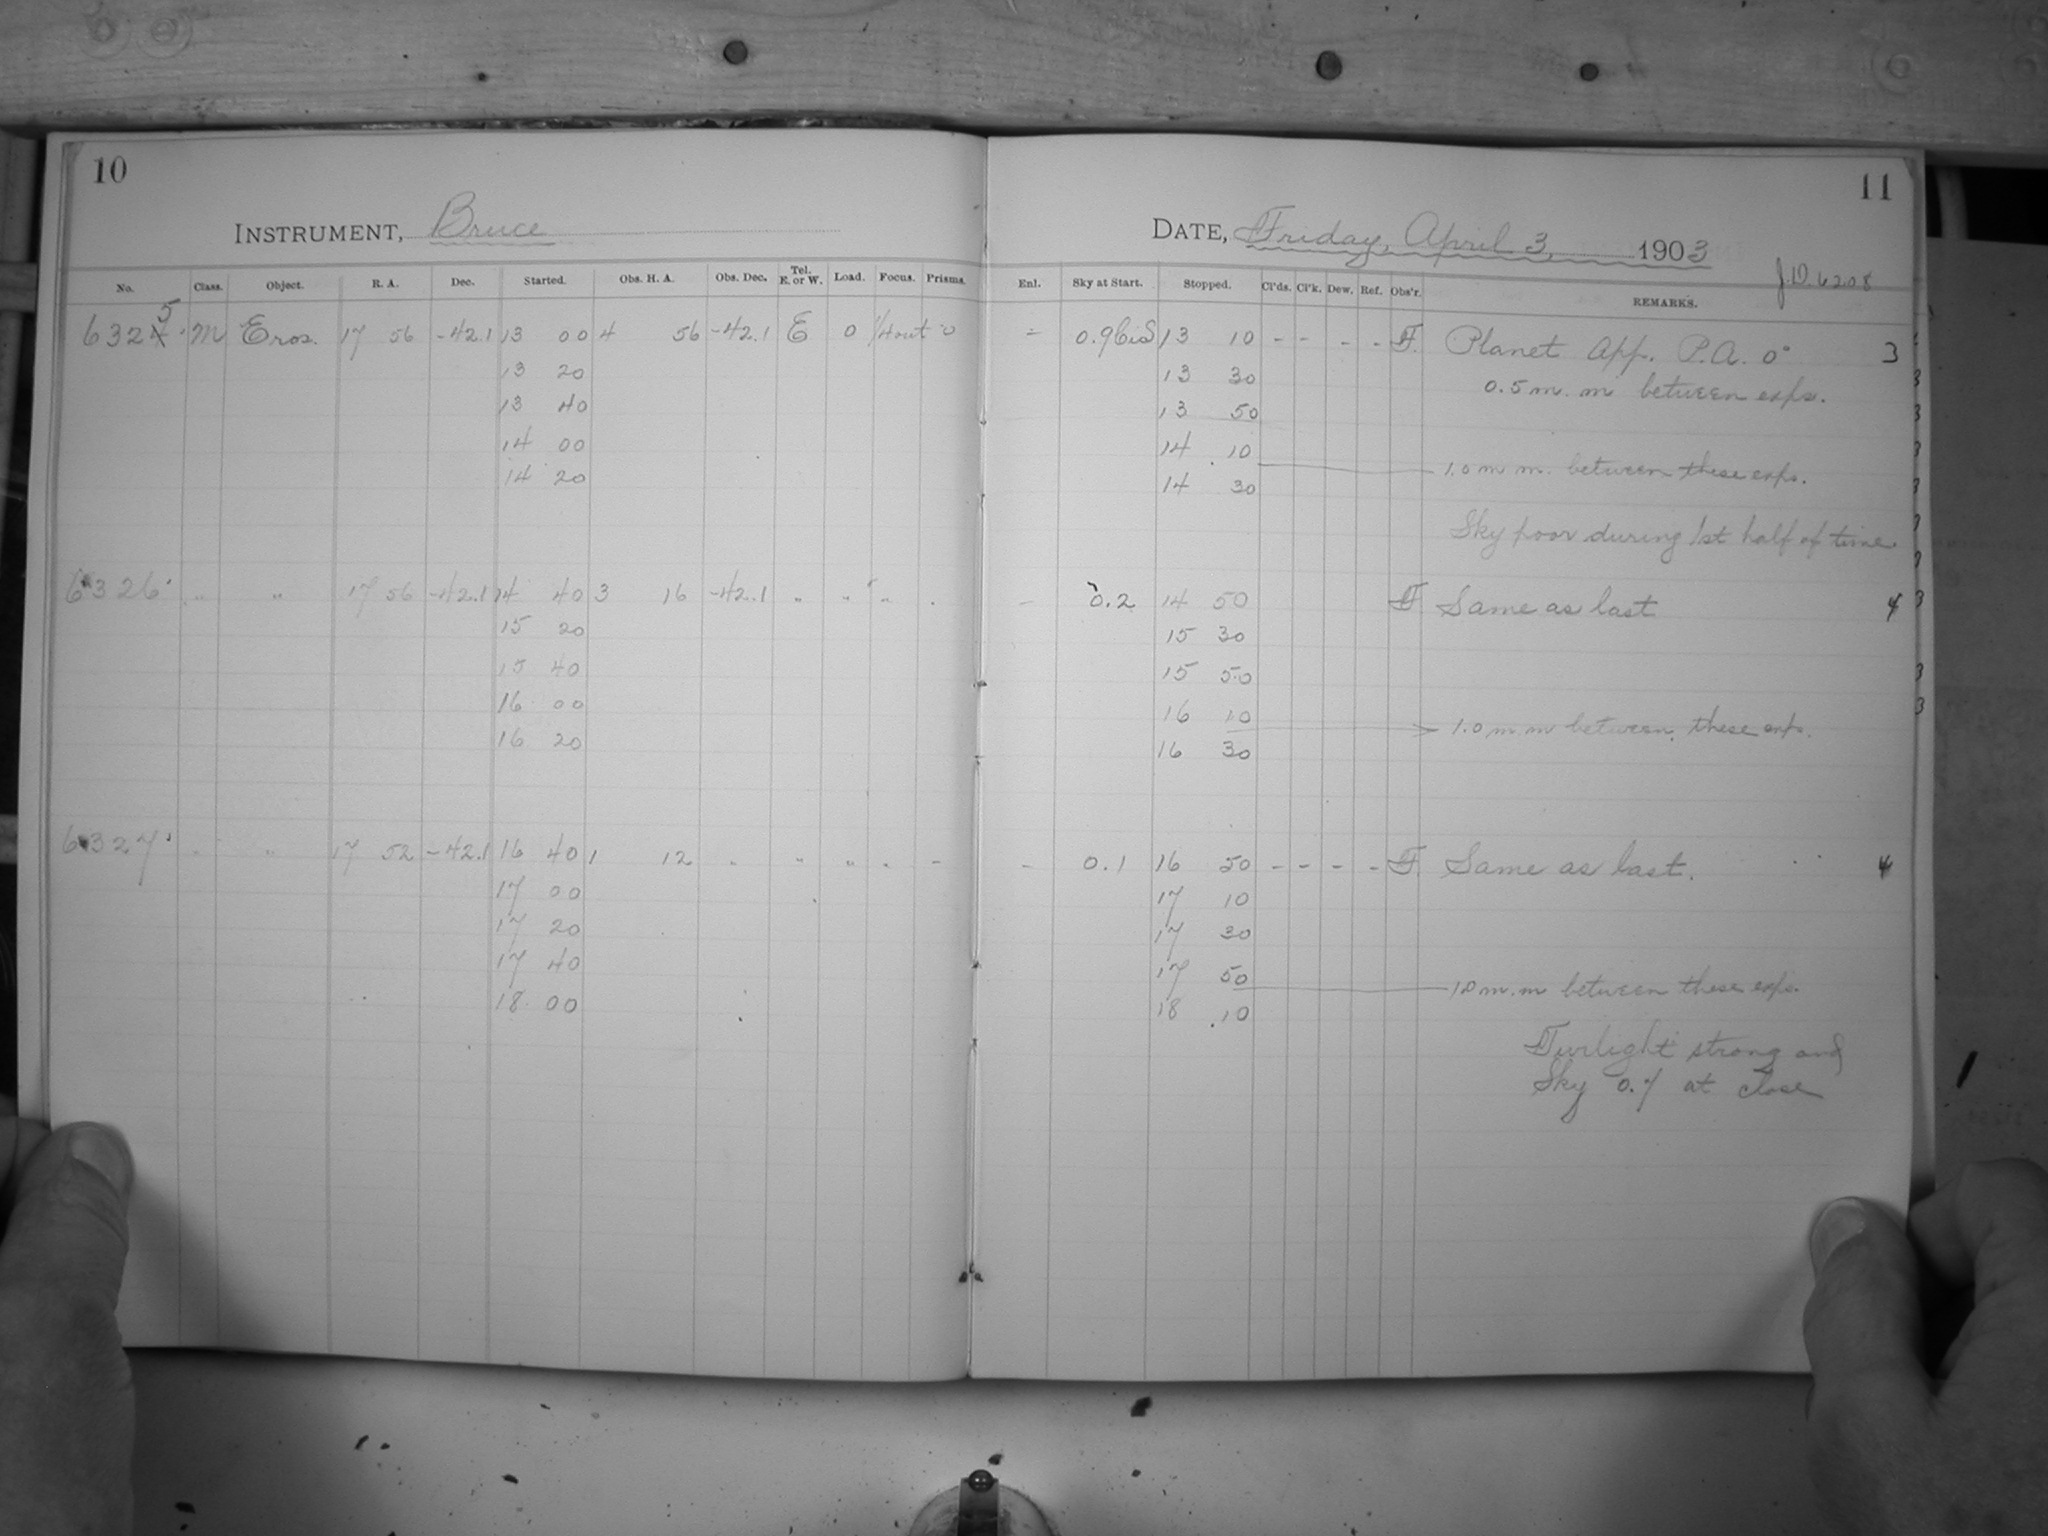 10
11
INSTRUMENT, Bruce
DATE, Friday, April 3, 1903
J.D. 6208
No. Class. Object. R. A. Dec. Started. Obs. H. A. Obs. Dec. Tel. E. or W. Load. Focus. Prisms. Enl. Sky at Start. Stopped. Cl'ds. Cl'k. Dew. Ref. Obs'r. REMARKS.
6325 M Eros. 17 56 -42.1 13 00 4 56 -42.1 E 0 0 - 13 10 - - - - F. Planet App. P.A. 0° 3
13 20 13 30 0.5 m.m between exps.
13 40 13 50
14 00 14 10
14 20 14 30 1.0 m m. between these exps.
Sky poor during 1st half of time
6326 " " 17 56 -42.1 14 40 3 16 -42.1 " " " - 0.2 14 50 F Same as last 4
15 20 15 30
15 40 15 50
16 00 16 10
16 20 16 30 1.0 m.m between these exps.
6327 " " 17 52 -42.1 16 40 1 12 " " " " - - 0.1 16 50 - - - - F. Same as last. 4
17 00 17 10
17 20 17 30
17 40 17 50
18 00 18 10 1.0 m.m between these exps.
Twilight strong and
Sky 0.7 at close